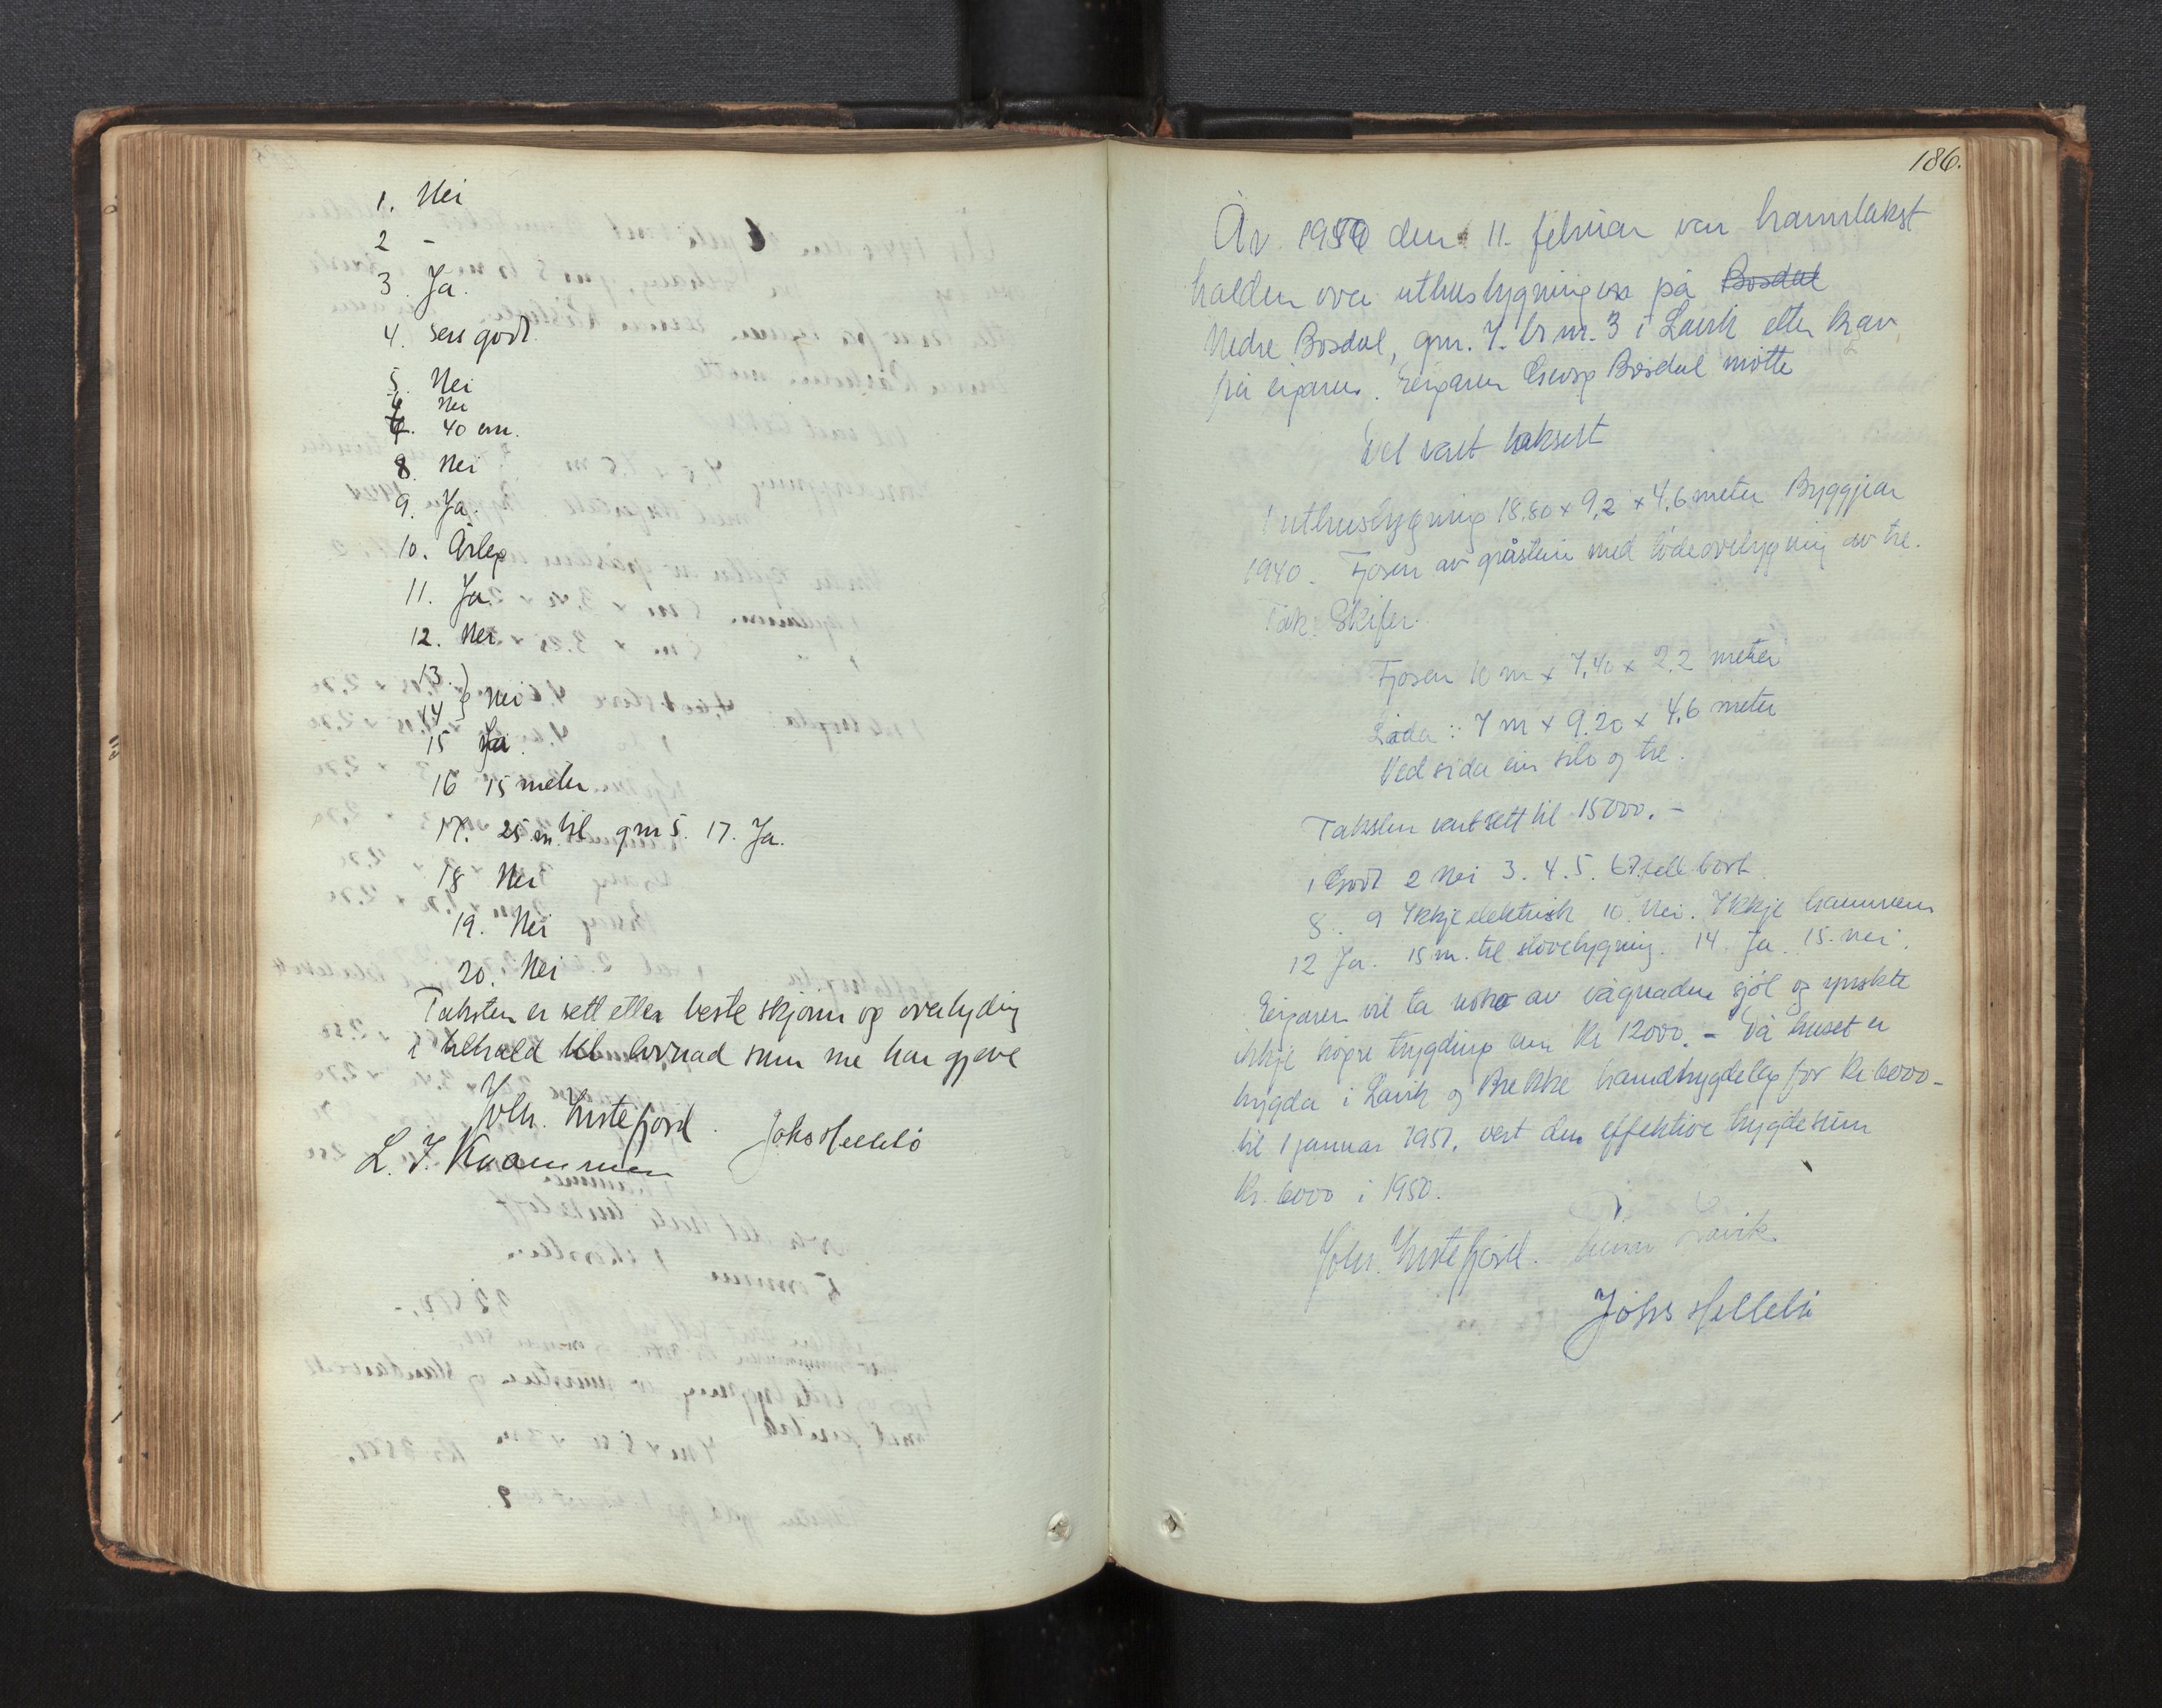 1. Nei
2 -
3. Ja.
4. ser godt.
5. Nei
6 Nei
7. 40 cm.
8. Nei
9. Ja.
10. Årleg
11. Ja.
12. Nei
13.
14 } Nei
15 Ja.
16 15 meter
17. 25 m. til gnr 5. 17. Ja.
18 Nei
19. Nei
20. Nei
Taksten er sett etter beste skjønn og overtyding
i tilhald til lovnad som me har gjeve
Johs. Ynstefjord. Johs Hellebö
L. J. Kvammen
186.
År 1950 den 11. februar var branntakst
halden over uthusbygningen på Bosdal
Nedre Bosdal, gnr. 7. br nr. 3 i Lavik etter krav
frå eigaren. Eigaren Georg Bosdal møtte
Det vart taksert
1 uthusbygning 18,80 x 9,2 x 4,6 meter Byggjeår
1940. Fjosen av gråstein med lödeoverbygning av tre.
Tak: Skifer.
Fjosen 10 m x 7,40 x 2.2 meter
Löda: 7 m x 9.20 x 4,6 meter
Ved sida ein silo og tre.
Taksten vart sett til 15000.-
1 Godt 2 Nei 3. 4. 5. 6 7. fell bort
8. 9 Ikkje elektrisk 10. Nei. Ikkje brannvern
12 Ja. 15 m. til stovebygning. 14 Ja 15. nei.
Eigaren vil ta noko av vågnaden sjöl og ynskte
ikkje högre trygding enn kr 12000.- Då huset er
trygda i Lavik og Brekke brandtrygdelag for kr. 6000-
til 1 januar 1951, vert den effektive trygdesum
kr. 6000 i 1950.
Johs. Ynstefjord. Lavik.
Johs Hellebö